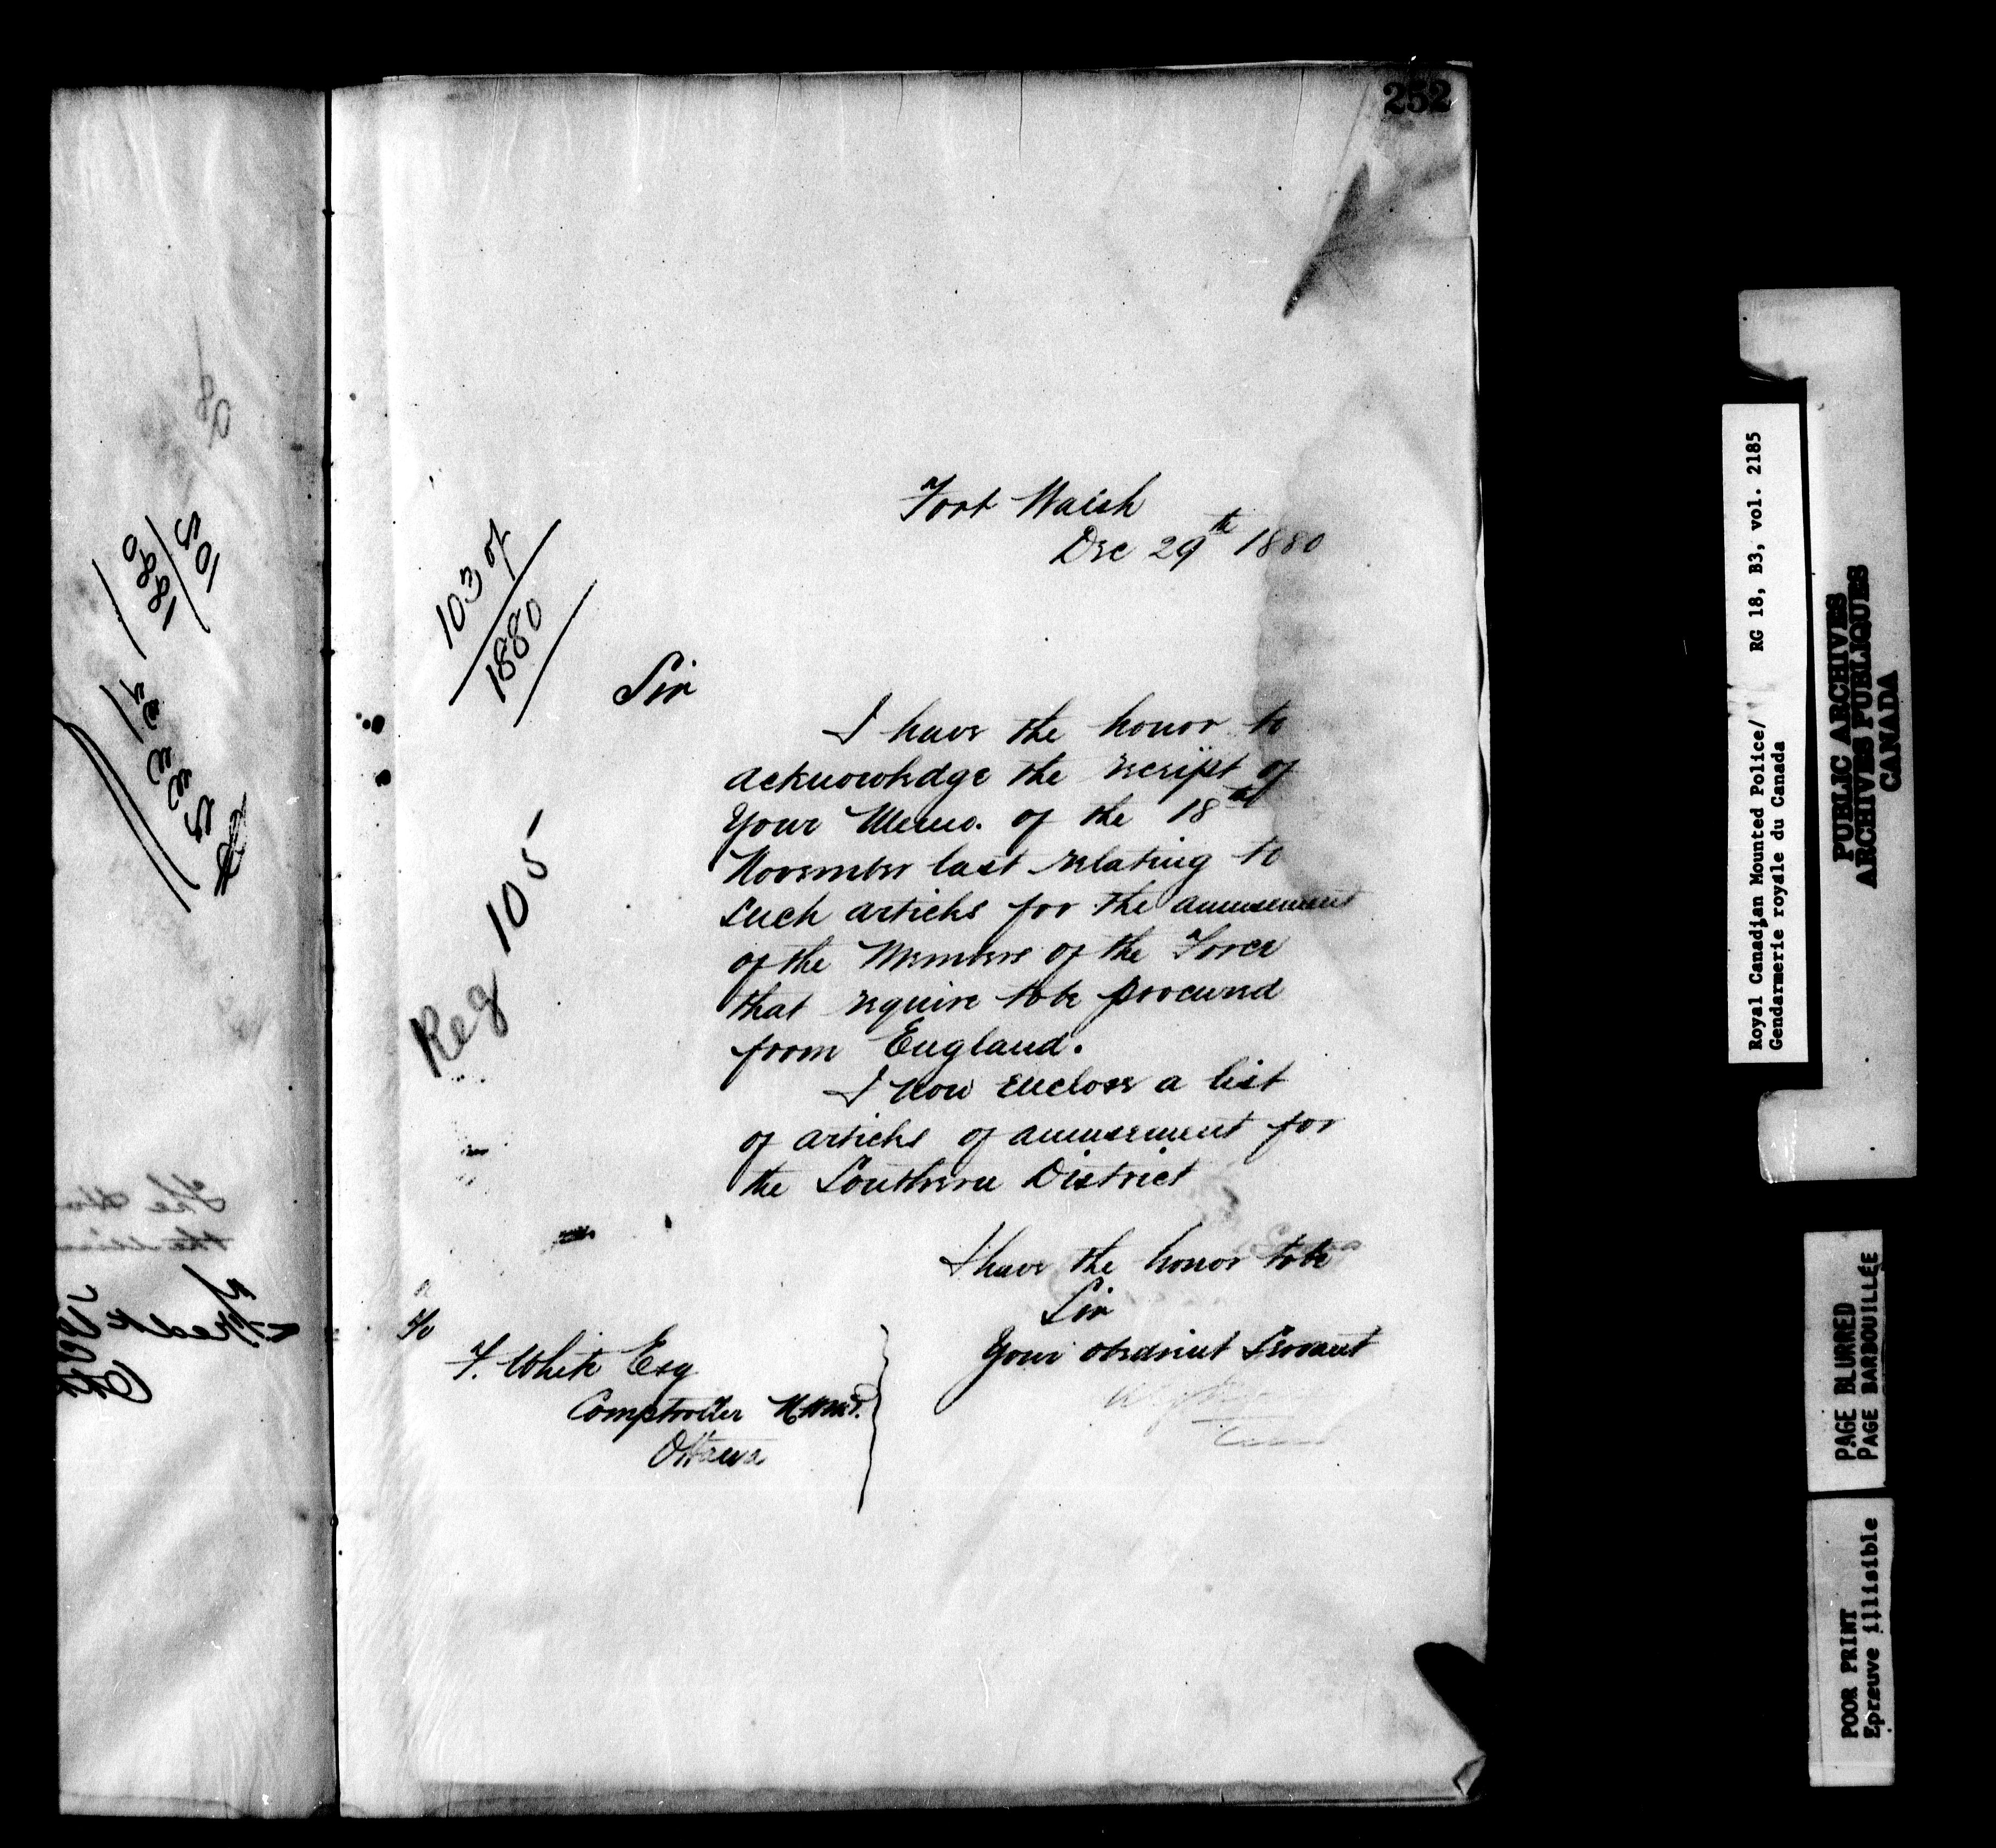 252
Fort Walsh
Dec 29th 1880
103 of
1880
Sir
I have the honor to
acknowledge the receipt of
your Memo. of the 18th
November last relating to
such articles for the amusement
of the Members of the Force
that require to be procured
from England.
Reg 105
I now enclose a list
of articles of amusement for
the Southern District
I have the honor to be
Sir
Your obedient Servant
To
F. White Esq
Comptroller N.W.M.P.
Ottawa
105
1880
Fredk
Royal Canadian Mounted Police/ RG 18, B3, vol. 2185
Gendarmerie royale du Canada
PUBLIC ARCHIVES
ARCHIVES PUBLIQUES
CANADA
PAGE BLURRED
PAGE BARBOUILLÉE
POOR PRINT
Epreuve illisible